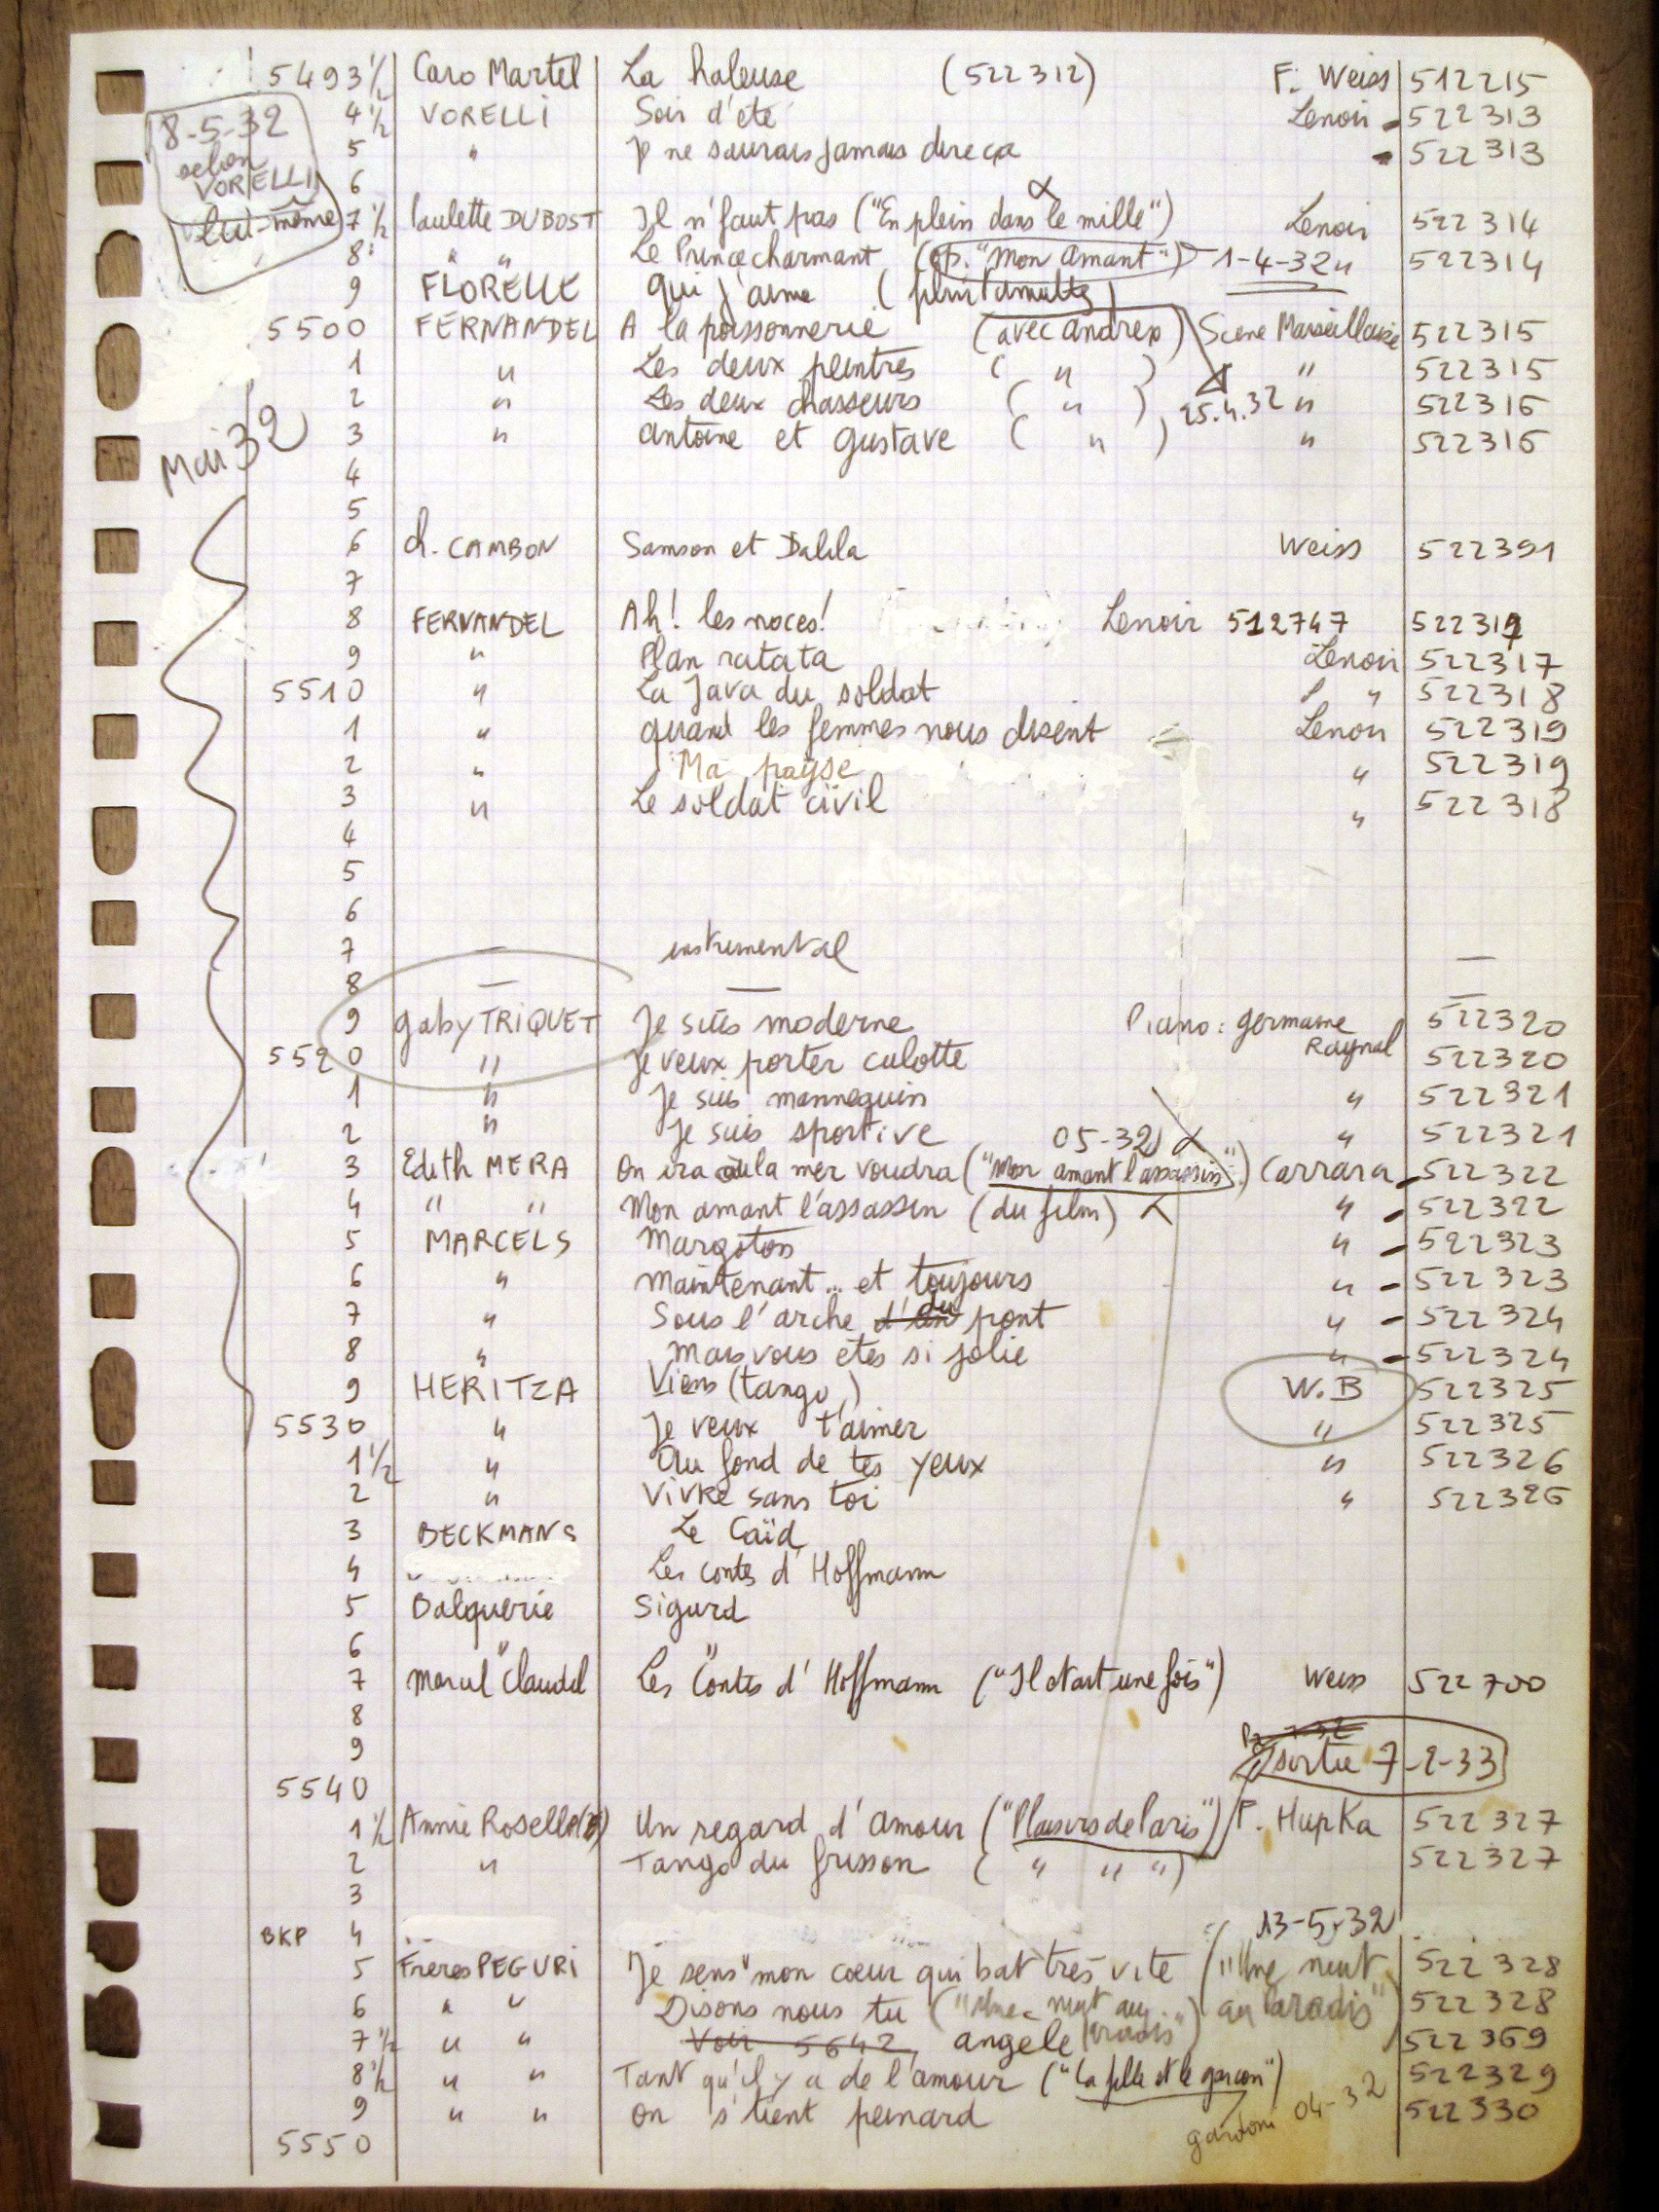 5493 1/2 Caro Martel La haleuse (522312) F. Weiss 512215
4 1/2 VORELLI Soir d'été Lenoir 522313
8-5-32 selon VORELLI lui-même
5 " Je ne saurais jamais dire ça 522313
6
7 1/2 Paulette DUBOST Il n'faut pas ("En plein dans le mille") Lenoir 522314
8 " " Le Prince charmant (op. "Mon amant") 1-4-32 " 522314
9 FLORELLE Qui j'aime
5500 FERNANDEL A la poissonnerie (avec andrex) Scène Marseillaise 522315
1 " Les deux peintres ( " ) " 522315
2 " Les deux chasseurs ( " ) 25.4.32 " 522316
Mai 32
3 " antoine et gustave ( " ) " 522316
4
5
6 Ch. CAMBON Samson et Dalila Weiss 522391
7
8 FERNANDEL Ah! les noces! Lenoir 512747 522317
9 " Plan ratata Lenoir 522317
5510 " La Java du soldat " 522318
1 " quand les femmes nous disent Lenoir 522319
2 " Ma payse " 522319
3 " Le soldat civil " 522318
4
5
6
7 — instrumental —
8 — — —
9 gaby TRIQUET Je suis moderne Piano: germaine Raynal 522320
5520 " Je veux porter culotte 522320
1 " Je suis mannequin " 522321
2 " Je suis sportive " 522321
05-32
3 Edith MERA On ira où la mer voudra ("Mon amant l'assassin") Carrara 522322
4 " " Mon amant l'assassin (du film) " 522322
5 MARCELS Margoton " 522323
6 " Maintenant... et toujours " 522323
7 " Sous l'arche d'un du pont " 522324
8 " Mais vous etes si jolie " 522324
9 HERITZA Viens (tango) W.B 522325
5530 " Je veux t'aimer " 522325
1 1/2 " Au fond de tes yeux " 522326
2 " Vivre sans toi " 522326
3 BECKMANS Le Caïd
4 Les contes d'Hoffmann
5 Balquerie Sigurd
6 " "
7 Marcel Claudel Les Contes d'Hoffmann ("Il était une fois") Weiss 522700
8
9
sortie 7-2-33
5540
1 1/2 Annie Rosellé(B) Un regard d'amour ("Plaisirs de Paris") F. Hupka 522327
2 " Tango du frisson ( " " ") 522327
3
13-5-32
BKP 4
5 Frères PEGURI Je sens mon cœur qui bat très vite ("Une nuit au Paradis") 522328
6 " " Disons nous tu ("Une nuit au Paradis") 522328
7 1/2 " " Voir 5642, angele 522369
8 1/2 " " Tant qu'il y a de l'amour ("La fille et le garçon") 522329
9 " " On s'tient peinard gardoni 04-32 522330
5550